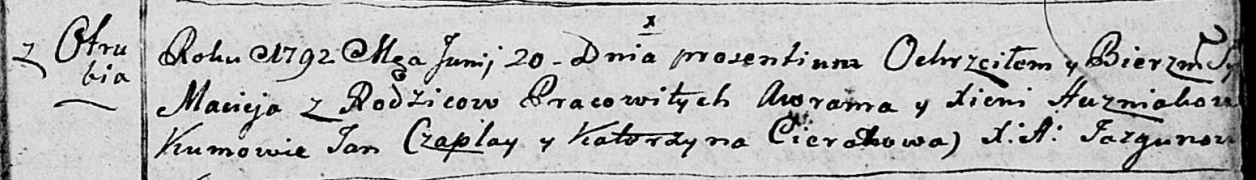 z Otru
bia
x
Roku 1792 Msca Junij 20 - Dnia prosentium Ochrzciłem y Bierzm
Macieja z Rodzicow Pracowitych Awrama y Xieni Huzniakow
Kumowie Jan Czaplay y Katerzyna Cierakowa) X: A: Jazgunow